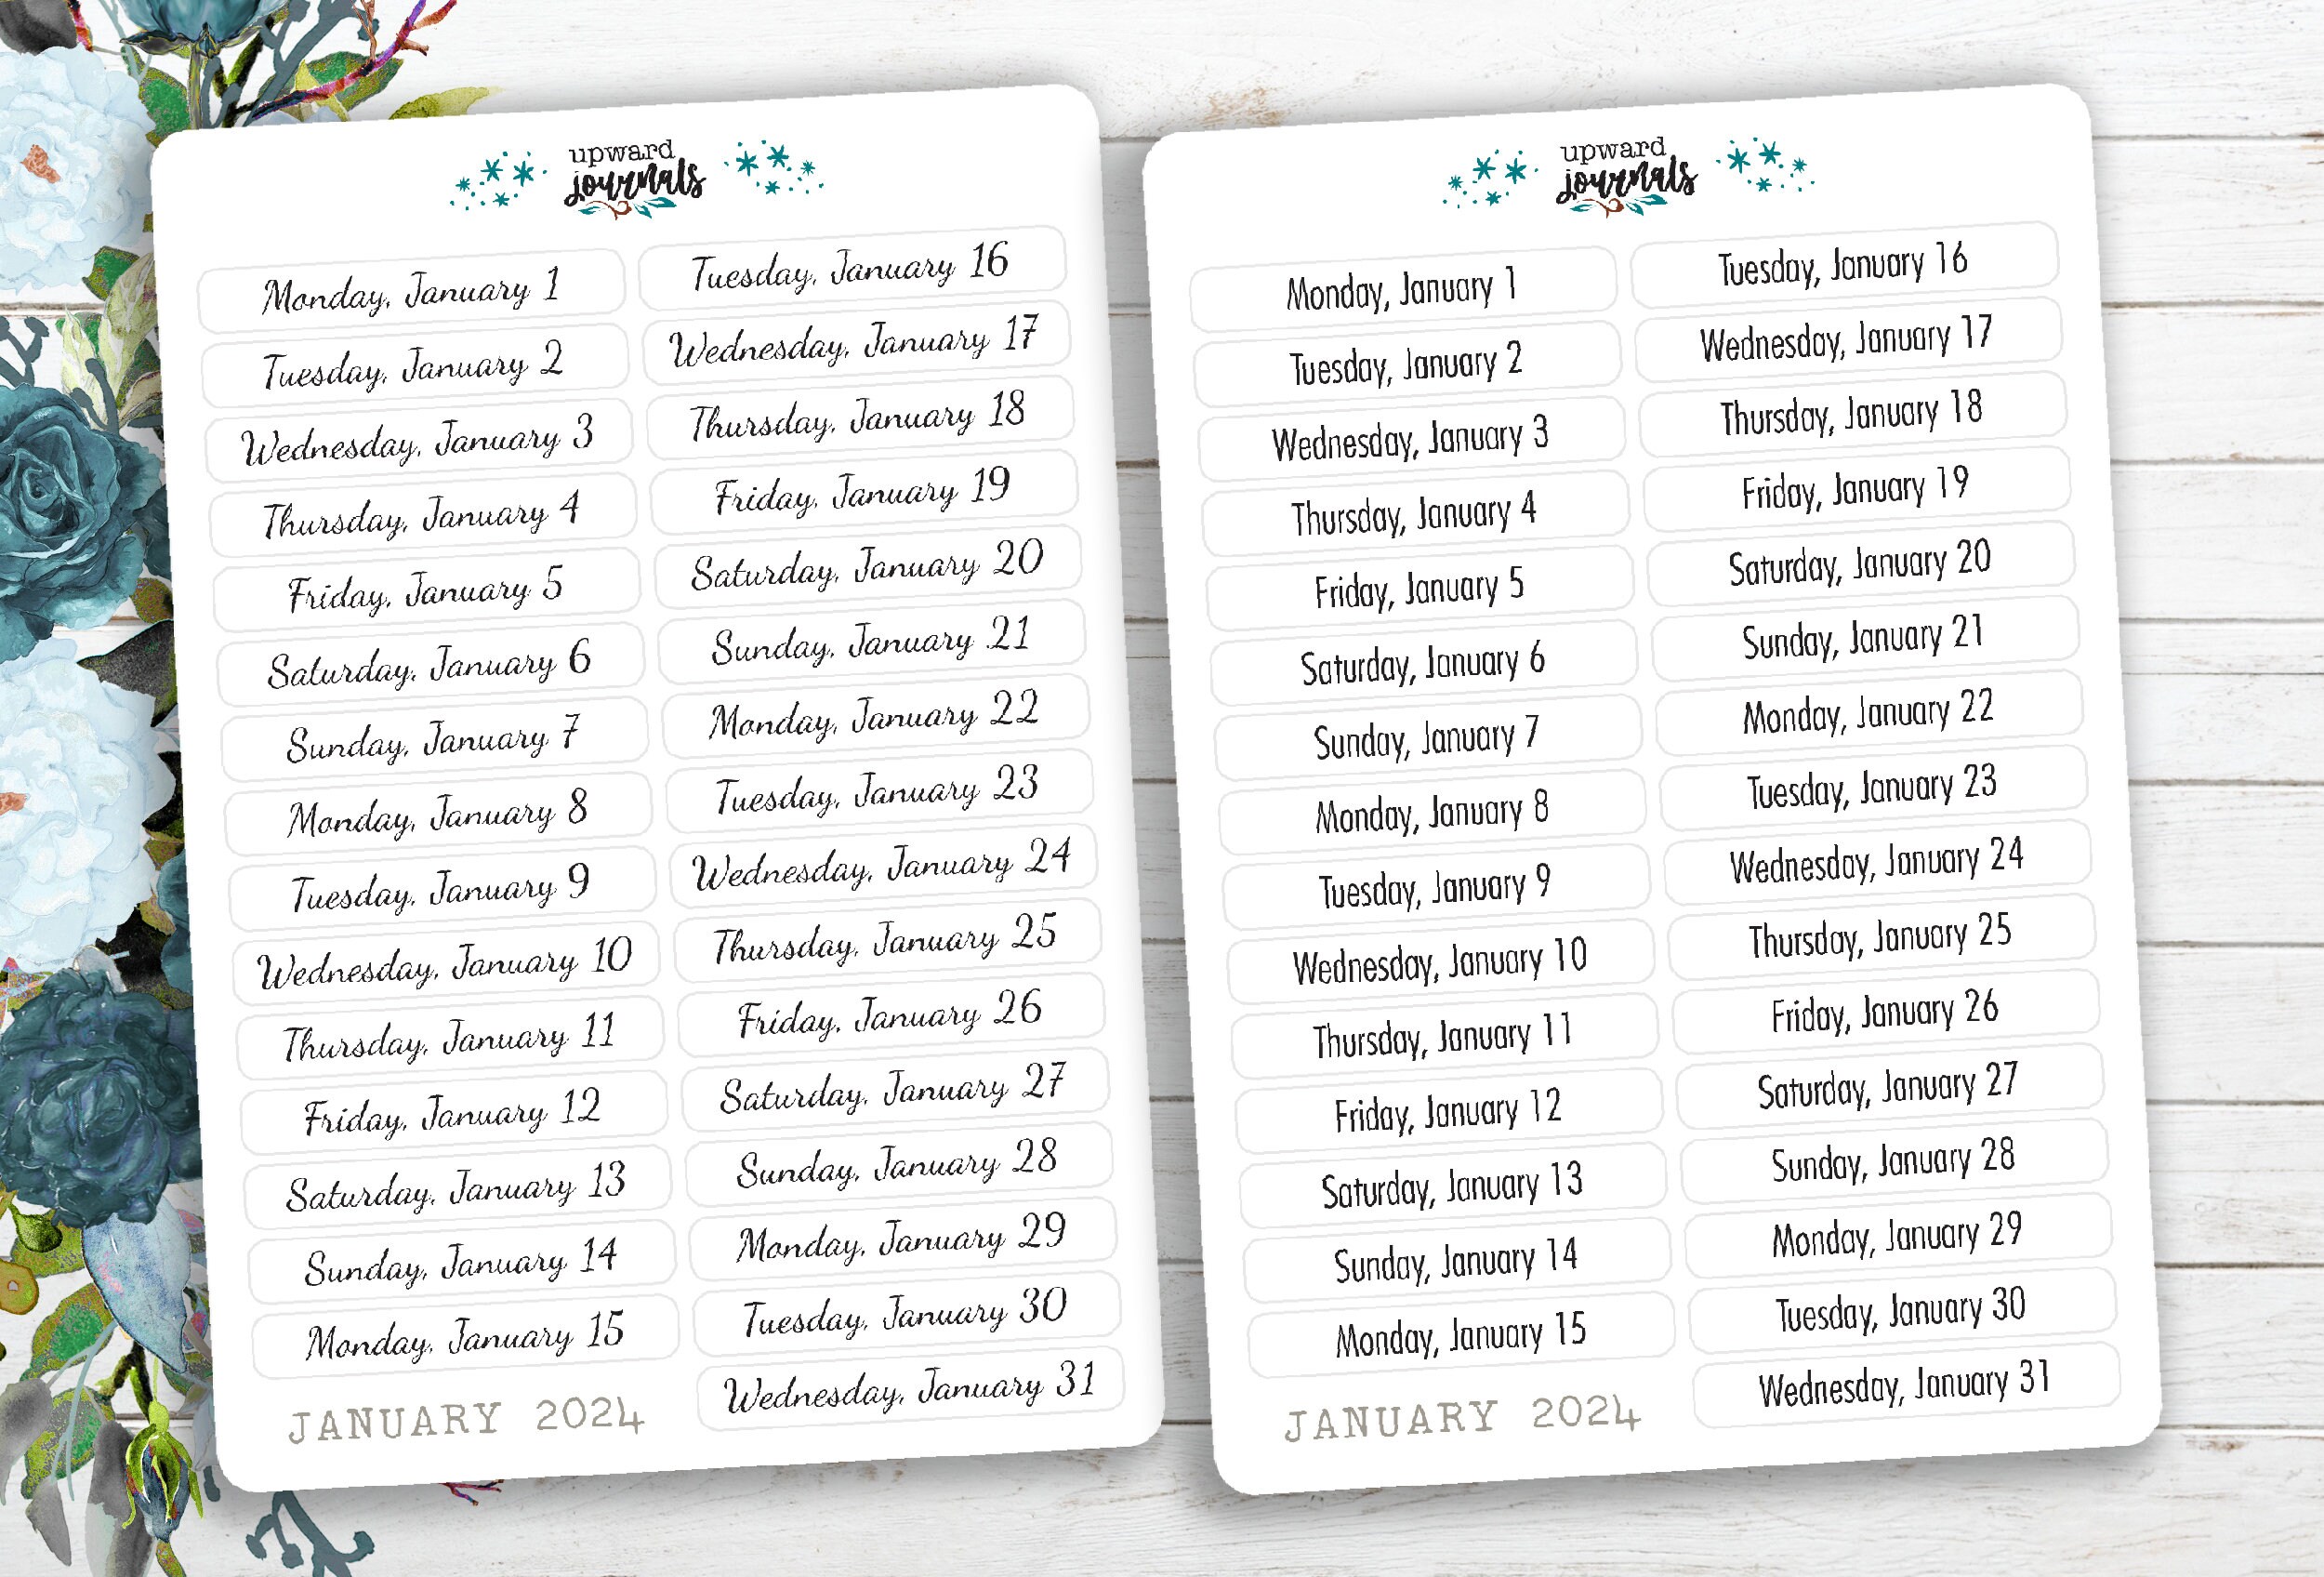 upward
journals
Monday, January 1
Tuesday, January 2
Wednesday, January 3
Thursday, January 4
Friday, January 5
Saturday, January 6
Sunday, January 7
Monday, January 8
Tuesday, January 9
Wednesday, January 10
Thursday, January 11
Friday, January 12
Saturday, January 13
Sunday, January 14
Monday, January 15
JANUARY 2024
Tuesday, January 16
Wednesday, January 17
Thursday, January 18
Friday, January 19
Saturday, January 20
Sunday, January 21
Monday, January 22
Tuesday, January 23
Wednesday, January 24
Thursday, January 25
Friday, January 26
Saturday, January 27
Sunday, January 28
Monday, January 29
Tuesday, January 30
Wednesday, January 31
upward
journals
Monday, January 1
Tuesday, January 2
Wednesday, January 3
Thursday, January 4
Friday, January 5
Saturday, January 6
Sunday, January 7
Monday, January 8
Tuesday, January 9
Wednesday, January 10
Thursday, January 11
Friday, January 12
Saturday, January 13
Sunday, January 14
Monday, January 15
JANUARY 2024
Tuesday, January 16
Wednesday, January 17
Thursday, January 18
Friday, January 19
Saturday, January 20
Sunday, January 21
Monday, January 22
Tuesday, January 23
Wednesday, January 24
Thursday, January 25
Friday, January 26
Saturday, January 27
Sunday, January 28
Monday, January 29
Tuesday, January 30
Wednesday, January 31